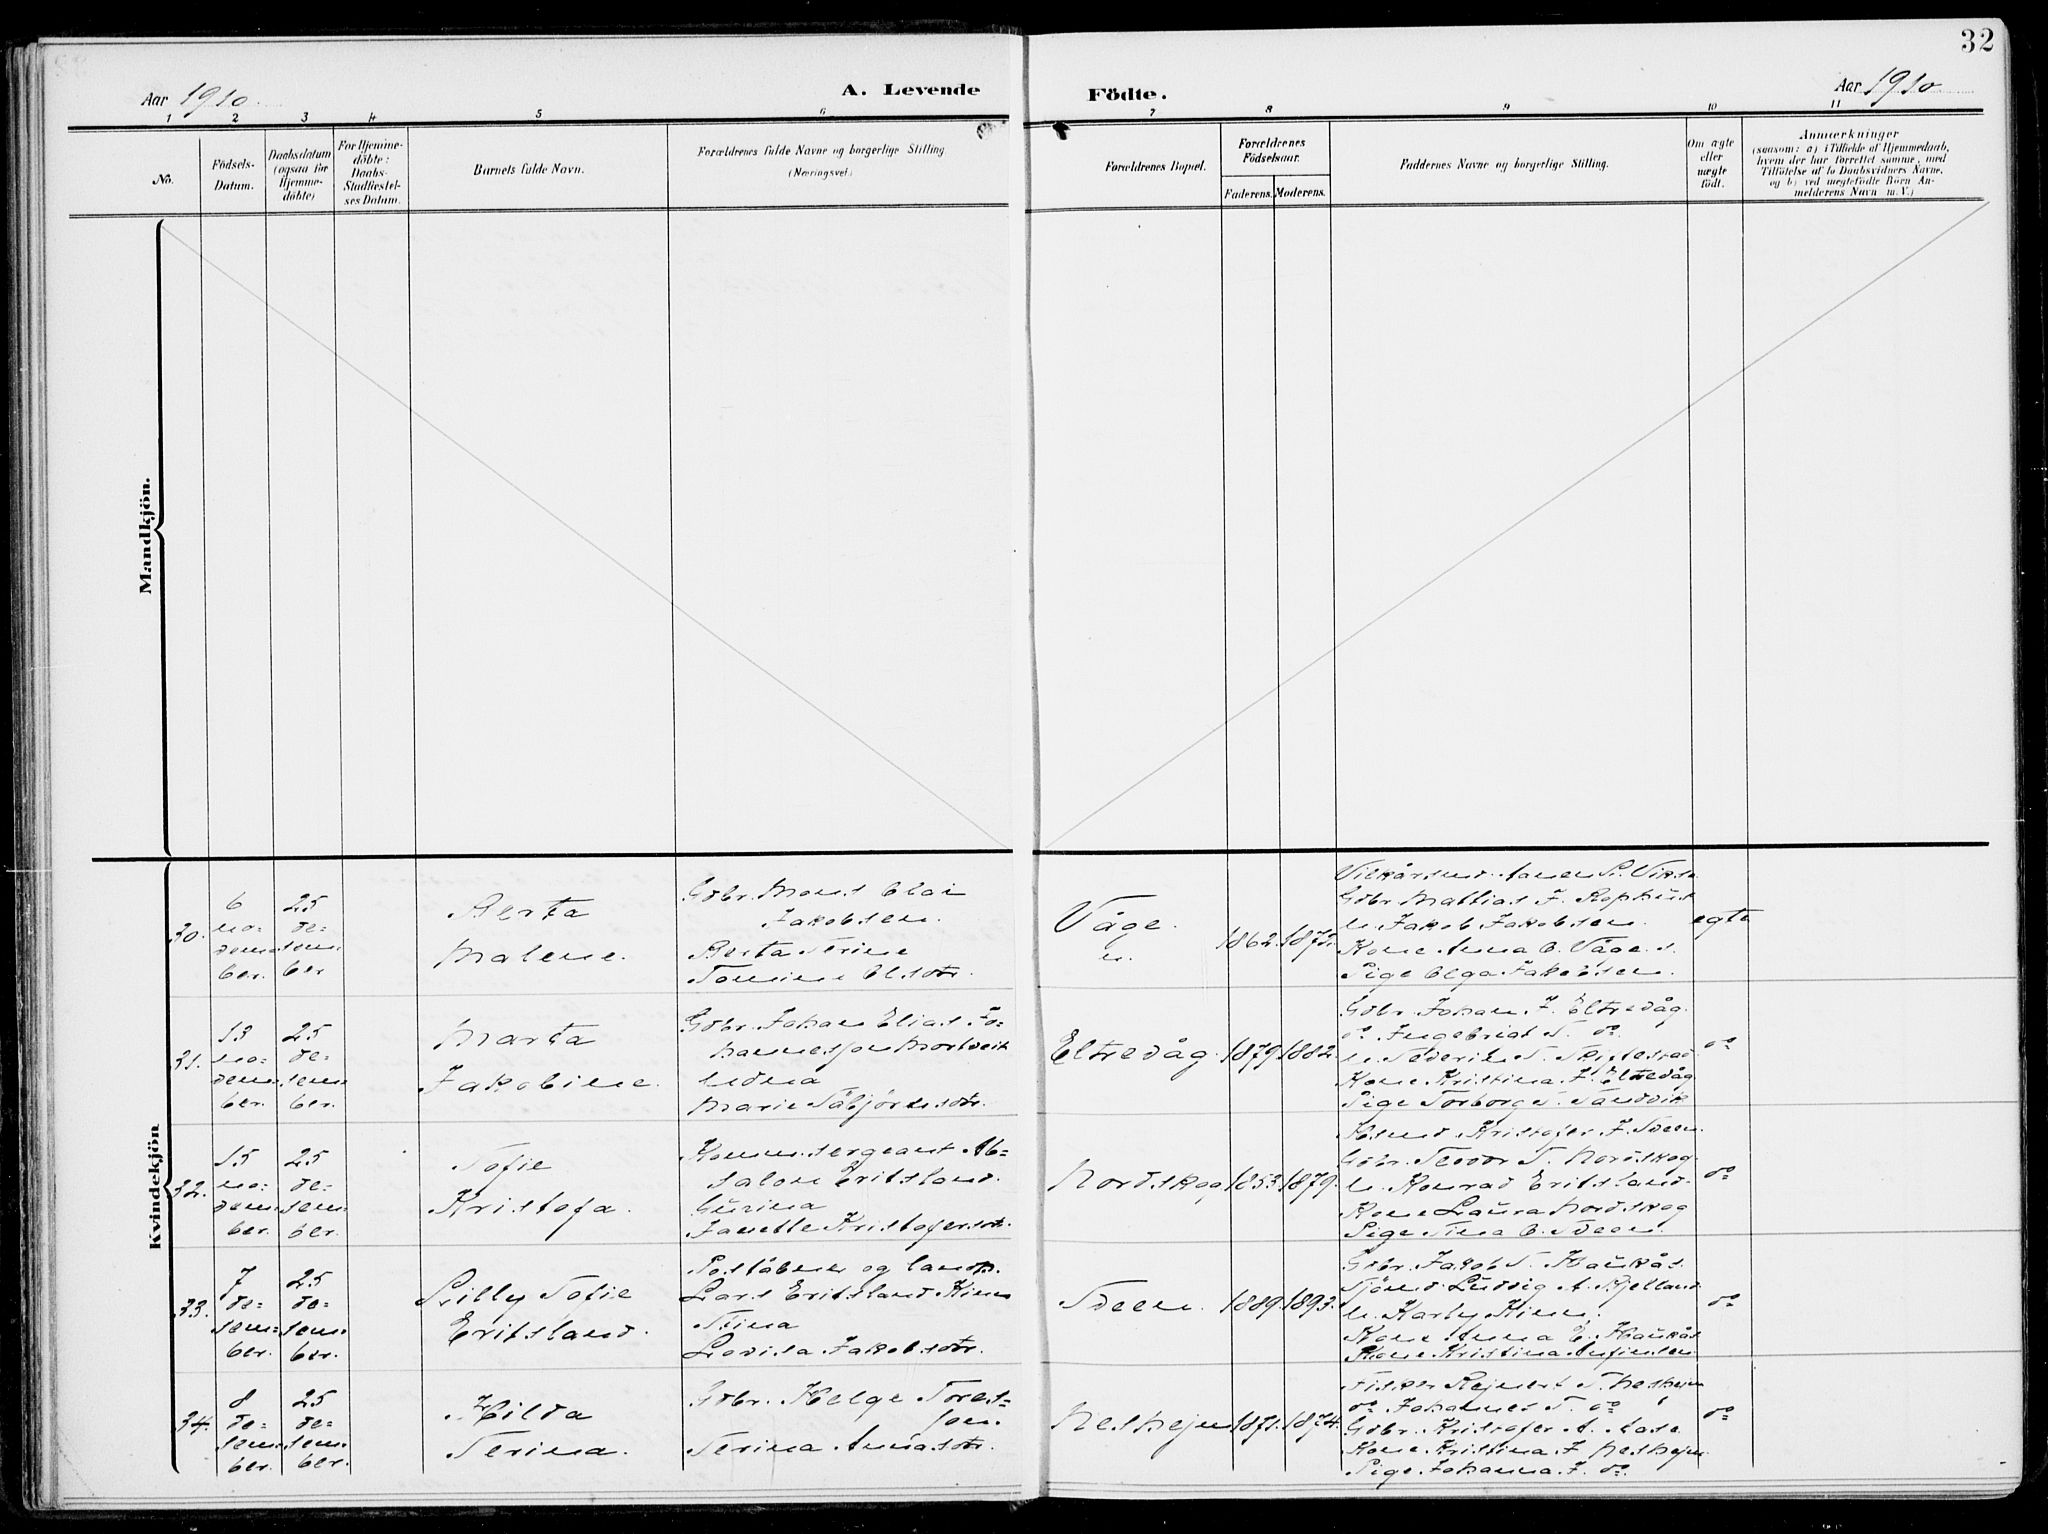 32
Aar 1910.
A. Levende
Födte.
Aar 1910
1 2 3 4 5 6 7 8 9 10 11
No.
Födsels-
Datum.
Daabsdatum
(ogsaa for
Hjemme-
döbte)
For Hjemme-
döbte:
Daabs-
Stadfæstel-
ses Datum.
Barnets fulde Navn.
Forældrenes fulde Navne og borgerlige Stilling.
(Næringsvei.)
Forældrenes Bopæl.
Forældrenes
Födselsaar.
Faderens.
Moderens.
Faddernes Navne og borgerlige Stilling.
Om ægte
eller
uægte
födt.
Anmærkninger
(saasom: a) i Tilfælde af Hjemmedaab,
hvem der har forrettet samme, med
Tilföielse af to Daabsvidners Navne,
og b) ved uægtefödte Börn An-
melderens Navn m. V.)
Mandkjön.
Kvindekjön
30.
6
no=
vem=
ber.
25
de=
sem=
ber
Berta
Malene.
Gdbr. Mons Olai
Jakobsen.
Berta Serine
Tomine Olsdtr.
Våge.
1862.
Gdbr. Mattias J.
u. Jakob Jakobsen.
Kone Anna O. Våge.
Pige Olga Jakobsen.
egte
31.
13
no=
vem=
ber.
25
de=
sem=
ber.
Marta
Jakobine.
Gdbr. Johan Elias Jo=
hannesson
Marie
Eltrevåg.
1879.
1882.
Gdbr. Johan J. Eltrevåg.
do. Ingebrigt do.
Kone Kristina J. Eltrevåg
Pige Torborg S. Sandvik
do
32.
15
no=
vem=
ber.
25
de=
sem=
ber.
Sofie
Kristofa.
Komm.sergeant Ab=
salon Eritsland.
Gurina
Janette Kristofersdtr.
Nordskog
1853.
1879.
Kristofer J. Sveen.
Gdbr. T. Nordskog
u. Konrad Eritsland.
Kone Laura Nordskog
Pige Tina O. Sveen.
do
33.
7
de=
sem=
ber.
25
de=
sem=
ber.
Lilly Sofie
Eritsland.
Poståbner og landh.
Lars Eritsland
Stina
Lovisa Jakobsdtr.
Sveen.
1889.
1893.
Gdbr. Jakob S. Haukås.
Ludvig A. Kjelland
u. Karly
Kone Anna E. Haukås
Kone Kristina
do
34.
8
de=
sem=
ber.
25
de=
sem=
ber.
Hilda
Serina.
Gdbr. Helge Tores=
sen.
Serina
Neshejm
1871.
1874.
Fisker Rejnert T. Neshejm
do. Johannes T. do
Gdbr. Kristofer A. Aase
Kone Kristina J. Neshejm.
Pige Johanna J. do.
do